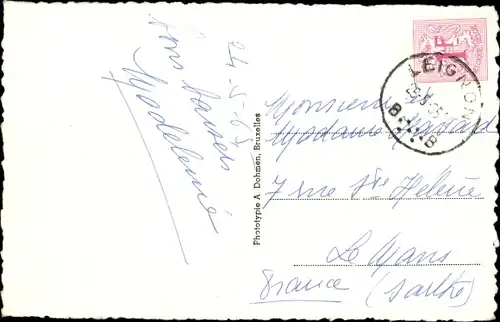 24-5-67
Bons baisers
Madeleine
Phototypie A Dohmen, Bruxelles
1F
LEIGNON
B B
Monsieur et
Madame
7 rue Ste Helene
Le Mans
France (Sarthe)